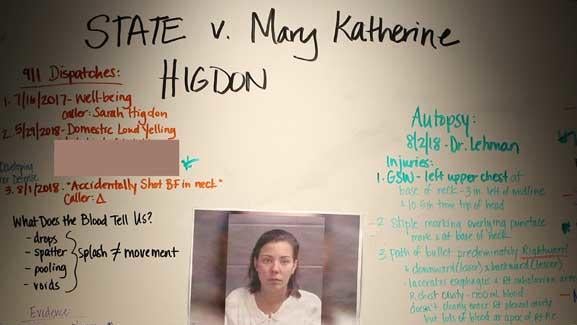 STATE v. Mary Katherine
HIGDON
911 Dispatches:
1. 7/16/2017 - Well-being
Caller: Sarah Higdon
2. 5/29/2018 - Domestic Loud Yelling
Developing
For Defense
3. 8/1/2018. "Accidentally Shot BF in neck"
Caller: Δ
What Does the Blood Tell Us?
- drops
- spatter
- pooling
- voids
splash ≠ movement
Evidence
Autopsy:
8/2/18 - Dr. Lehman
Injuries:
1. GSW - left upper chest at
base of neck - 3 in. left of midline
10.5 in from top of head
2. Stiple marking overlying punctate
mark @ base of neck
3. Path of bullet predominately Rightward
& downward (lesser) & backward (lesser)
- lacerates esophagus & Rt subclavian
R chest cavity - 1200 mL blood
doesn't clearly enter Rt pleural cavity
but lots of blood @ apex of Rt P.C.